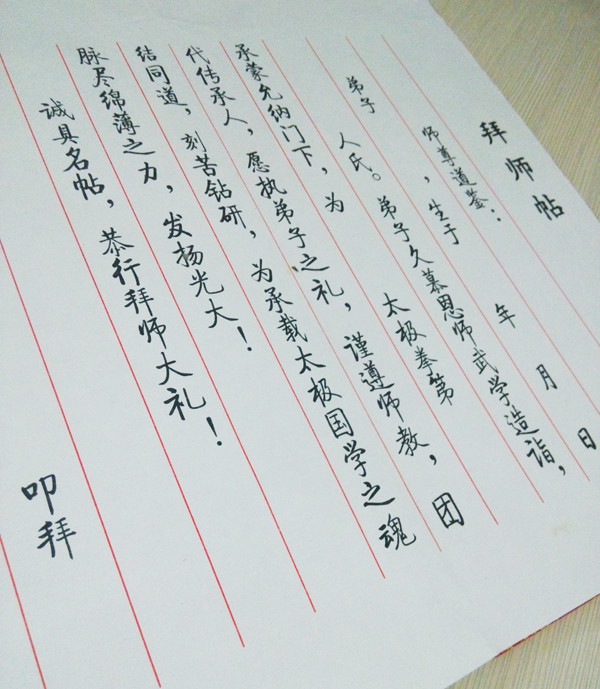 拜师帖
师尊道鉴：
弟子 ，生于 年 月 日
人氏。弟子久慕恩师武学造诣，
承蒙允纳门下，为 太极拳第
代传承人，愿执弟子之礼，谨遵师教，团
结同道，刻苦钻研，为承载太极国学之魂
脉尽绵薄之力，发扬光大！
诚具名帖，恭行拜师大礼！
叩拜